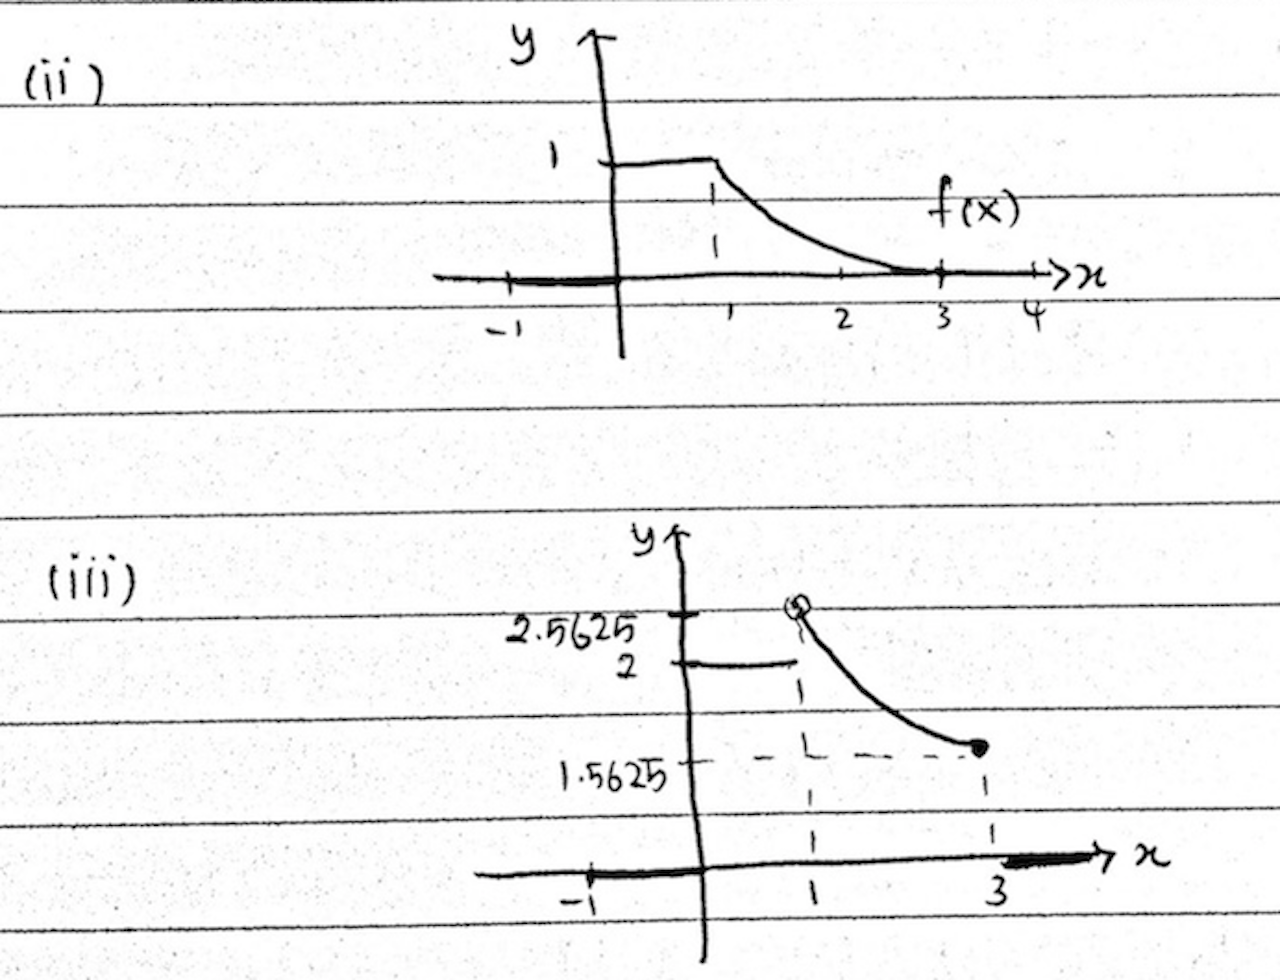 (ii)
y
1
f(x)
x
-1 1 2 3 4
(iii)
y
2.5625
2
1.5625
x
-1 1 3